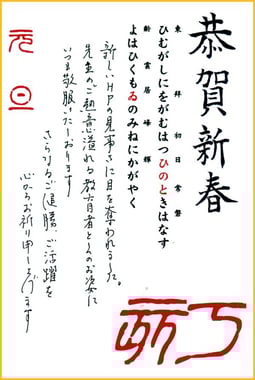 恭賀新春
東拝初日常磐
ひむがしにをがむはつひのときはなす
齢雲居峰輝
よはひくもゐのみねにかがやく
新しいHPの見事さに目を奪われました。
先生のご熱意溢れる教育者としてのお姿に
いつも敬服いたしております
さらなるご健勝、ご活躍を
心からお祈り申し上げます
元旦